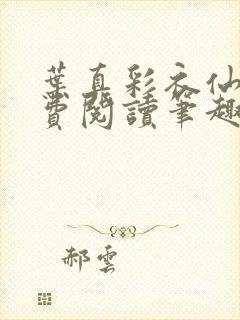 葉真彩衣仙
費閱讀筆趣
郝雲